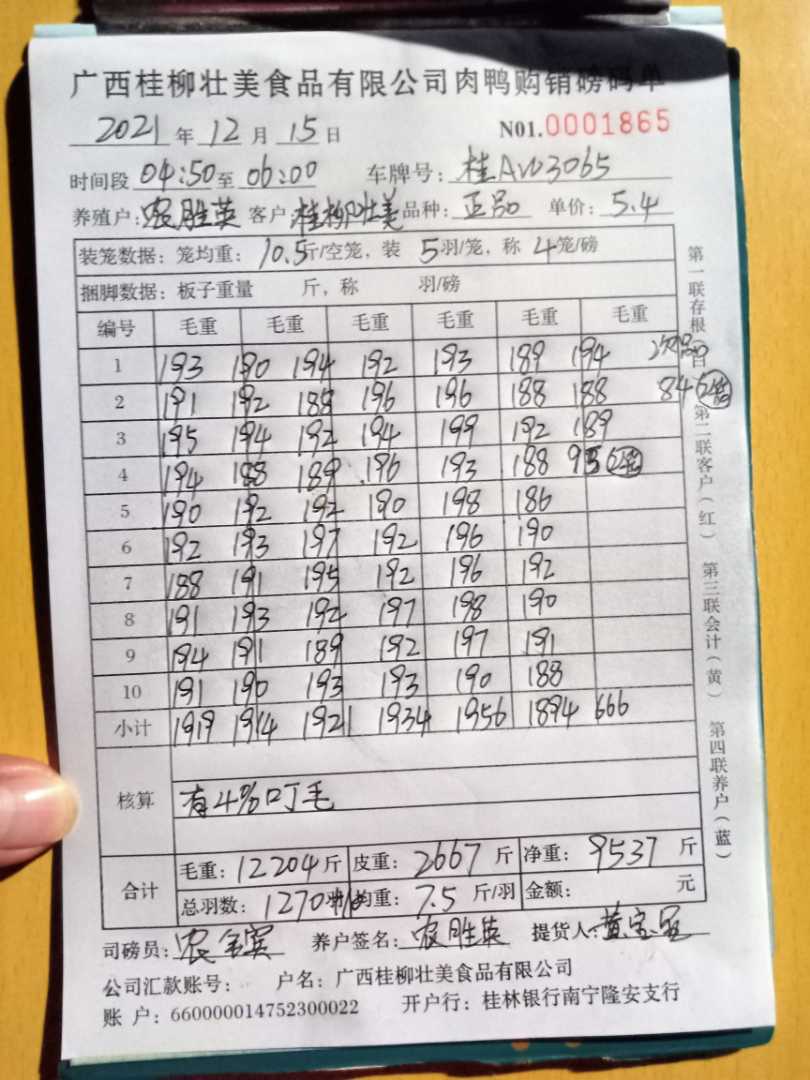 广西桂柳壮美食品有限公司肉鸭购销磅码单
2021年12月15日 N01.0001865
时间段04:50至06:00 车牌号:桂AW3065
养殖户:农胜英 客户:桂柳壮美 品种:正品 单价:5.4
装笼数据:笼均重:10.5斤/空笼,装5羽/笼,称4笼/磅
捆脚数据:板子重量 斤,称 羽/磅
编号 毛重 毛重 毛重 毛重 毛重 毛重
1 193 190 194 192 193 189 194 次品
2 191 192 188 196 196 188 188 84
3 195 194 192 194 199 192 189
4 194 188 189 196 193 188 95
5 190 192 192 190 198 186
6 192 193 197 192 196 190
7 188 191 195 192 196 192
8 191 193 192 197 198 190
9 194 191 189 192 197 191
10 191 190 193 193 190 188
小计 1919 1914 1921 1934 1956 1894 666
核算 有4%叮毛
合计 毛重:12204斤 皮重:2667斤 净重:9537斤
总羽数:1270 均重:7.5斤/羽 金额: 元
司磅员: 养户签名:农胜英 提货人:
公司汇款账号: 户名:广西桂柳壮美食品有限公司
账 户:660000014752300022 开户行:桂林银行南宁隆安支行
第一联存根白 第二联客户(红) 第三联会计(黄) 第四联养户(蓝)